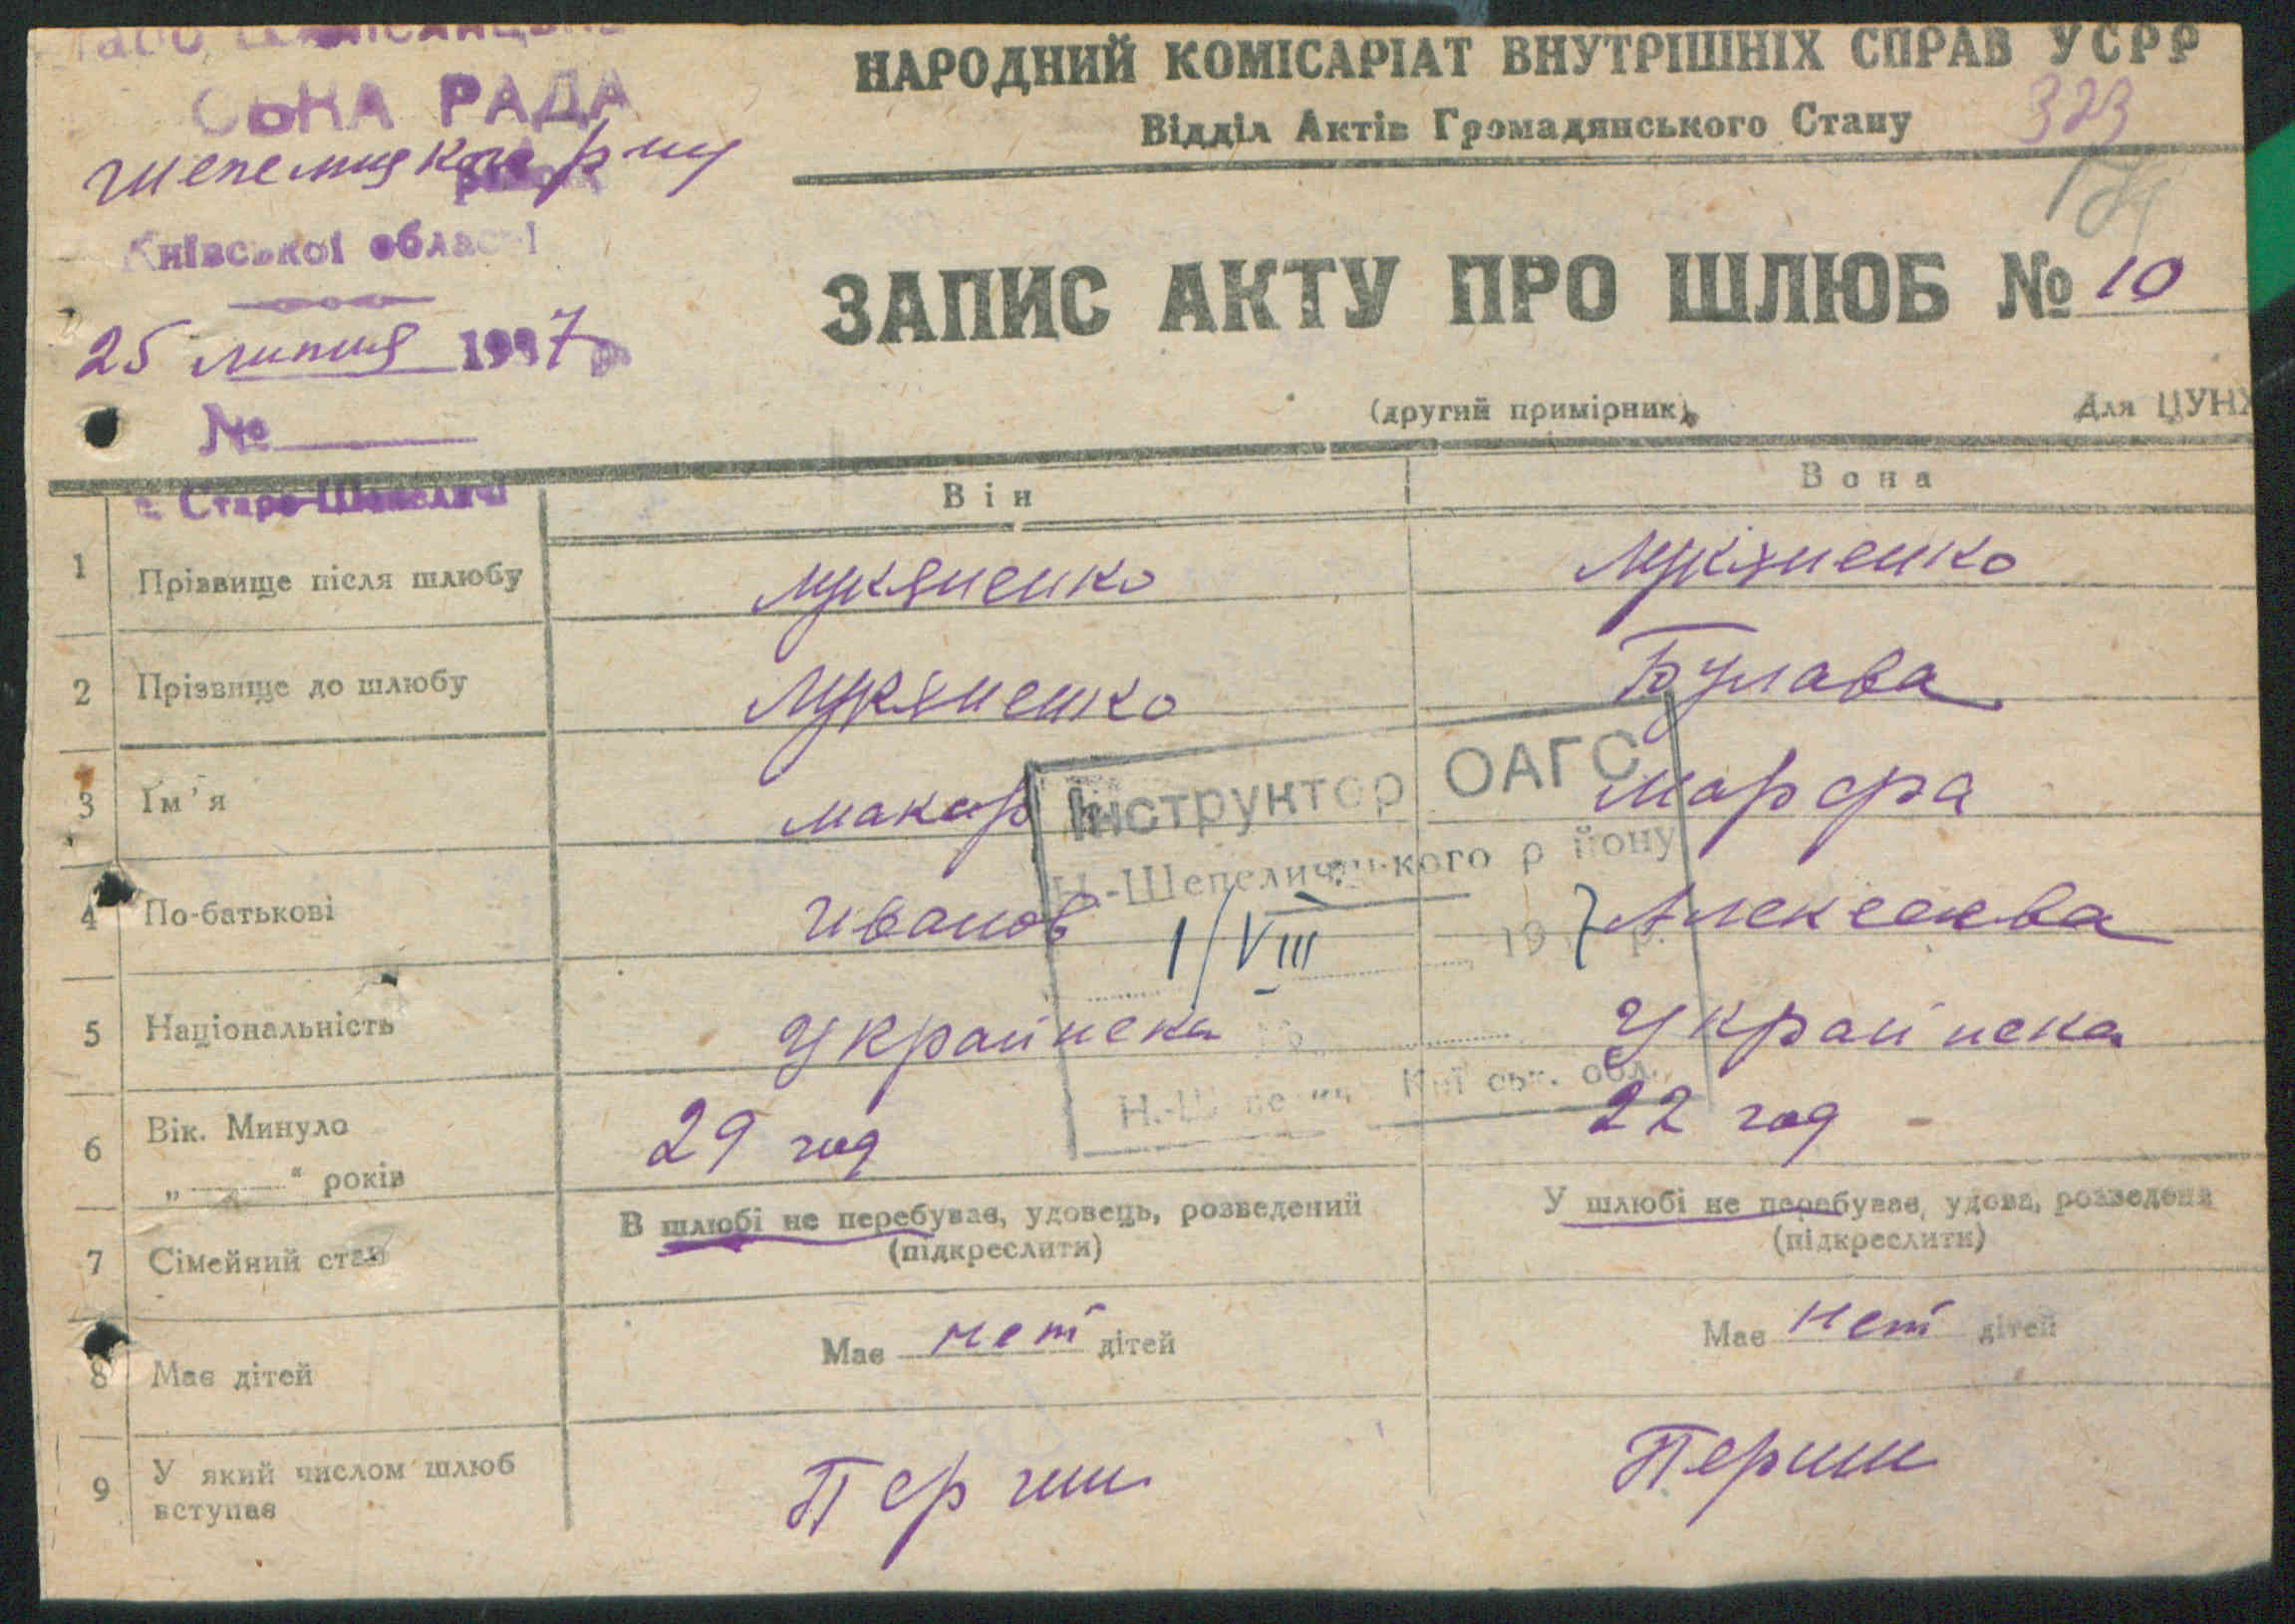 СЬКА РАДА
Київської області
25 липня 1937 р.
№
с. Старо-Шепеличі
НАРОДНИЙ КОМІСАРІАТ ВНУТРІШНІХ СПРАВ УСРР
Відділ Актів Громадянського Стану
323
ЗАПИС АКТУ ПРО ШЛЮБ № 10
(другий примірник)
Для ЦУНХ
Він Вона
1 Прізвище після шлюбу Лукяненко Лукяненко
2 Прізвище до шлюбу Лукяненко Булава
3 Ім'я Макар Марфа
Інструктор ОАГС
Н.-Шепелицького району
4 По-батькові Иванов Алексеева
1/VIII 1937 р.
5 Національність Украйнска Украйнска
Н.-Шепеличі Київськ. обл.
6 Вік. Минуло 29 год 22 год
„ “ років
7 Сімейний стан В шлюбі не перебував, удовець, розведений У шлюбі не перебуває, удова, розведена
(підкреслити) (підкреслити)
8 Має дітей Має нет дітей Має нет дітей
9 У який числом шлюб Перши Перши
вступає